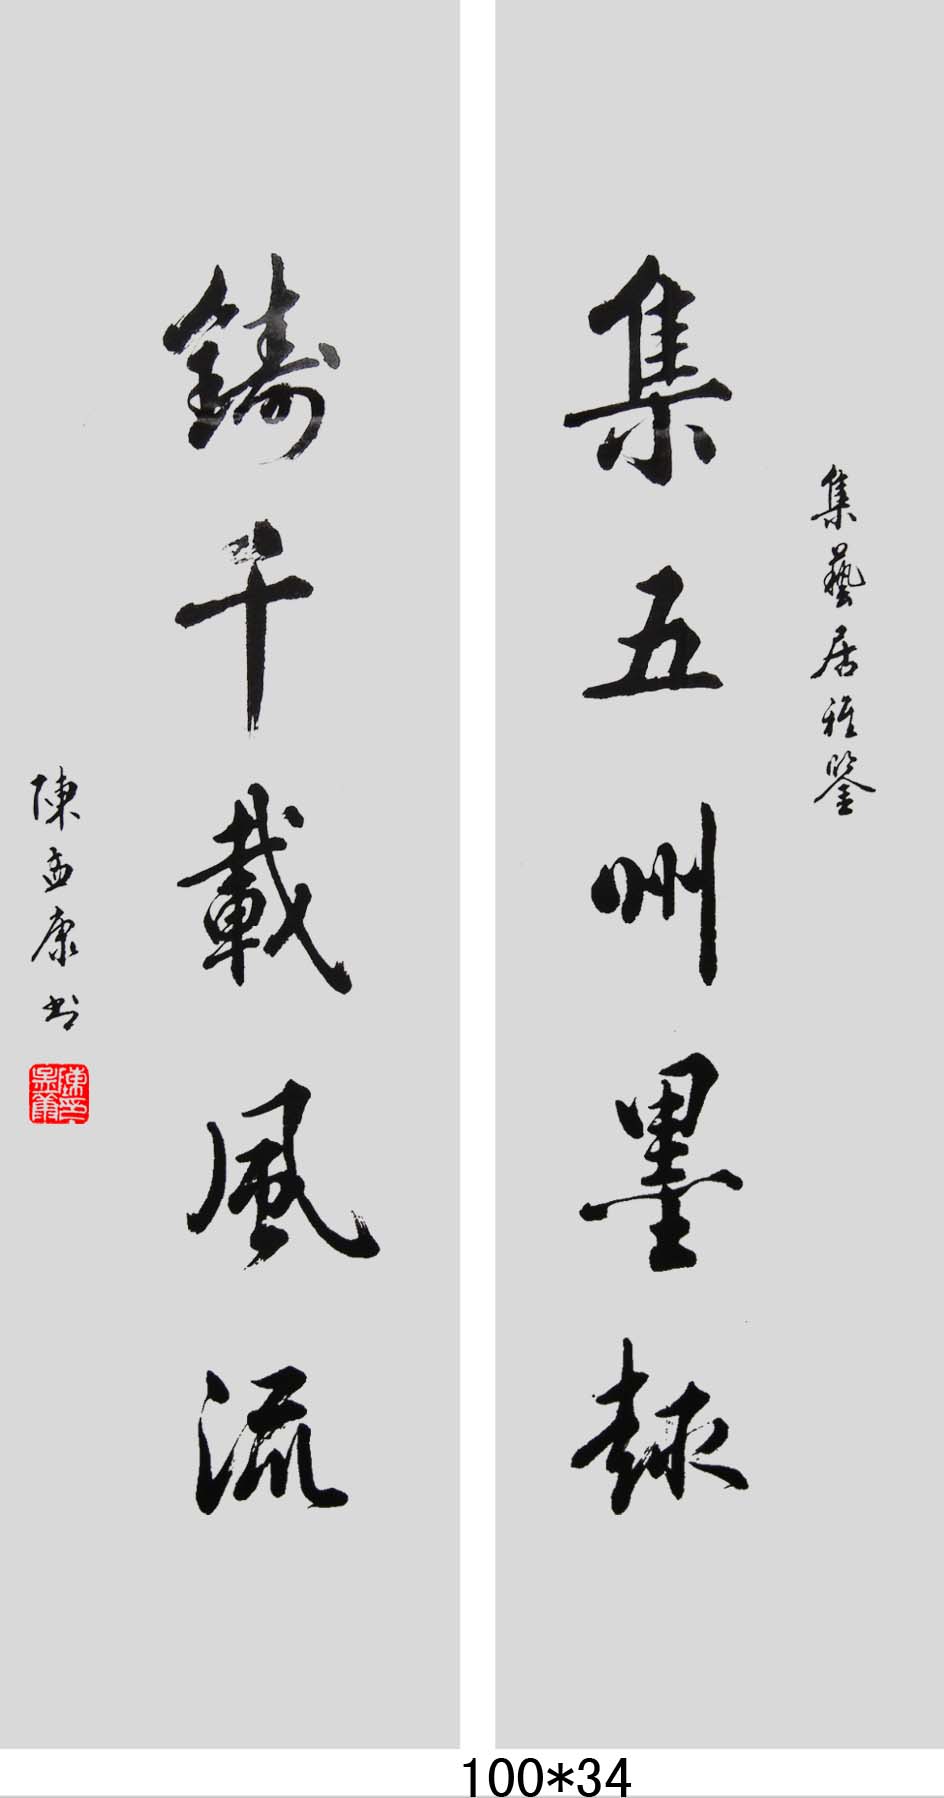 集藝居雅鑒
集五州墨趣
鑄千載風流
陳孟康书
100*34